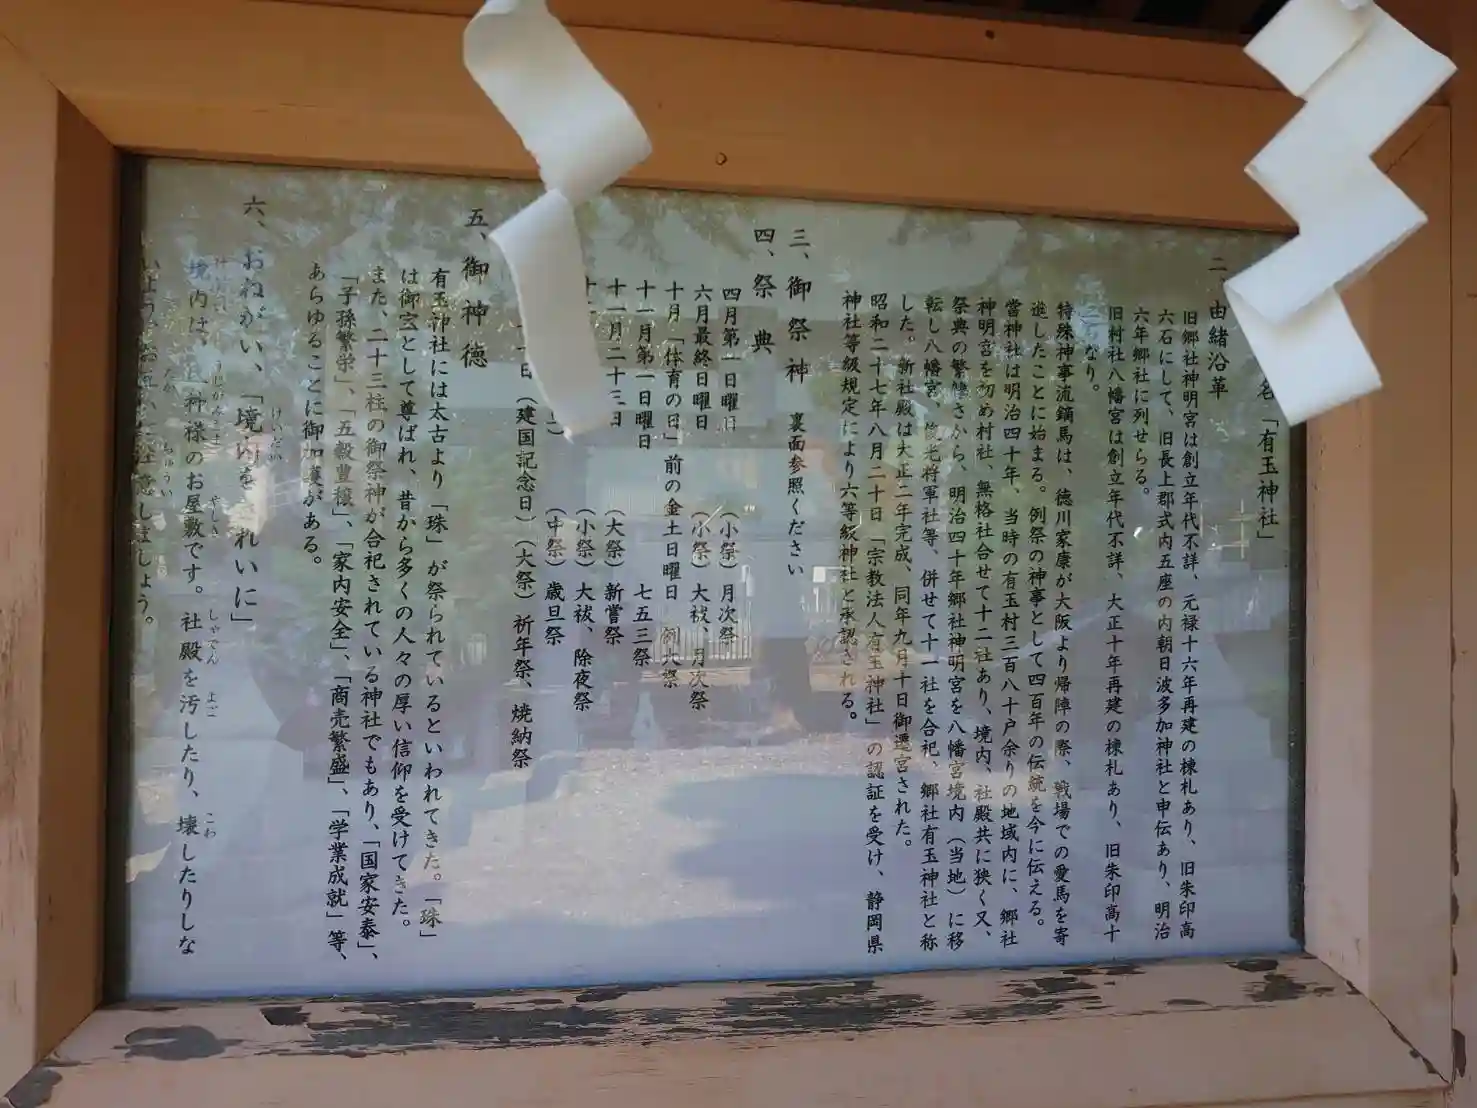 名「有玉神社」
二
由緒沿革
旧郷社神明宮は創立年代不詳、元禄十六年再建の棟札あり、旧朱印高
六石にして、旧長上郡式内五座の内朝日波多加神社と申伝あり、明治
六年郷社に列せらる。
旧村社八幡宮は創立年代不詳、大正十年再建の棟札あり、旧朱印高十
二石なり。
特殊神事流鏑馬は、徳川家康が大阪より帰陣の際、戦場での愛馬を寄
進したことに始まる。例祭の神事として四百年の伝統を今に伝える。
當神社は明治四十年、当時の有玉村三百八十戸余りの地域内に、郷社
神明宮を初め村社、無格社合せて十二社あり、境内、社殿共に狭く又、
祭典の繁雑さから、明治四十年郷社神明宮を八幡宮境内（当地）に移
転し八幡宮、俊光将軍社等、併せて十一社を合祀、郷社有玉神社と称
した。新社殿は大正二年完成、同年九月十日御遷宮された。
昭和二十七年八月二十日「宗教法人有玉神社」の認証を受け、静岡県
神社等級規定により六等級神社と承認される。
三、御祭神　裏面参照ください
四、祭典
四月第一日曜日（小祭）月次祭
六月最終日曜日（小祭）大祓、月次祭
十月「体育の日」前の金土日曜日　例大祭
十一月第一日曜日　七五三祭
十一月二十三日（大祭）新嘗祭
十二（小祭）大祓、除夜祭
（中祭）歳旦祭
日（建国記念日）（大祭）祈年祭、焼納祭
五、御神徳
有玉神社には太古より「珠」が祭られているといわれてきた。「珠」
は御宝として尊ばれ、昔から多くの人々の厚い信仰を受けてきた。
また、二十三柱の御祭神が合祀されている神社でもあり、「国家安泰」、
「子孫繁栄」、「五穀豊穣」、「家内安全」、「商売繁盛」、「学業成就」等、
あらゆることに御加護がある。
六、おねがい、「境内をきれいに」
境内は、氏神様のお屋敷です。社殿を汚したり、壊したりしな
いよう、お互いに注意しましょう。